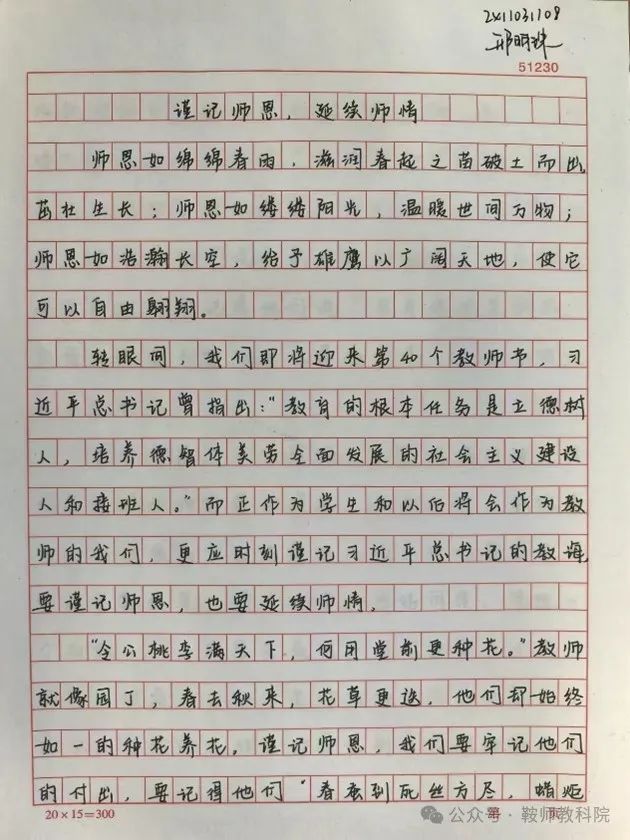 2X11031109
邢明珠
51230
谨记师恩，延续师情
师恩如绵绵春雨，滋润春起之苗破土而出
茁壮生长；师恩如缕缕阳光，温暖世间万物；
师恩如浩瀚长空，给予雄鹰以广阔天地，使它
可以自由翱翔。
转眼间，我们即将迎来第40个教师节，习
近平总书记曾指出：“教育的根本任务是立德树
人，培养德智体美劳全面发展的社会主义建设
人和接班人。”而正作为学生和以后将会作为教
师的我们，更应时刻谨记习近平总书记的教诲
要谨记师恩，也要延续师情。
“令公桃李满天下，何用堂前更种花。”教师
就像园丁，春去秋来，花草更迭，他们却一始终
如一的种花养花。谨记师恩，我们要牢记他们
的付出，要记得他们“春蚕到死丝方尽，蜡炬
20×15=300
第 页
公众号·鞍师教科院